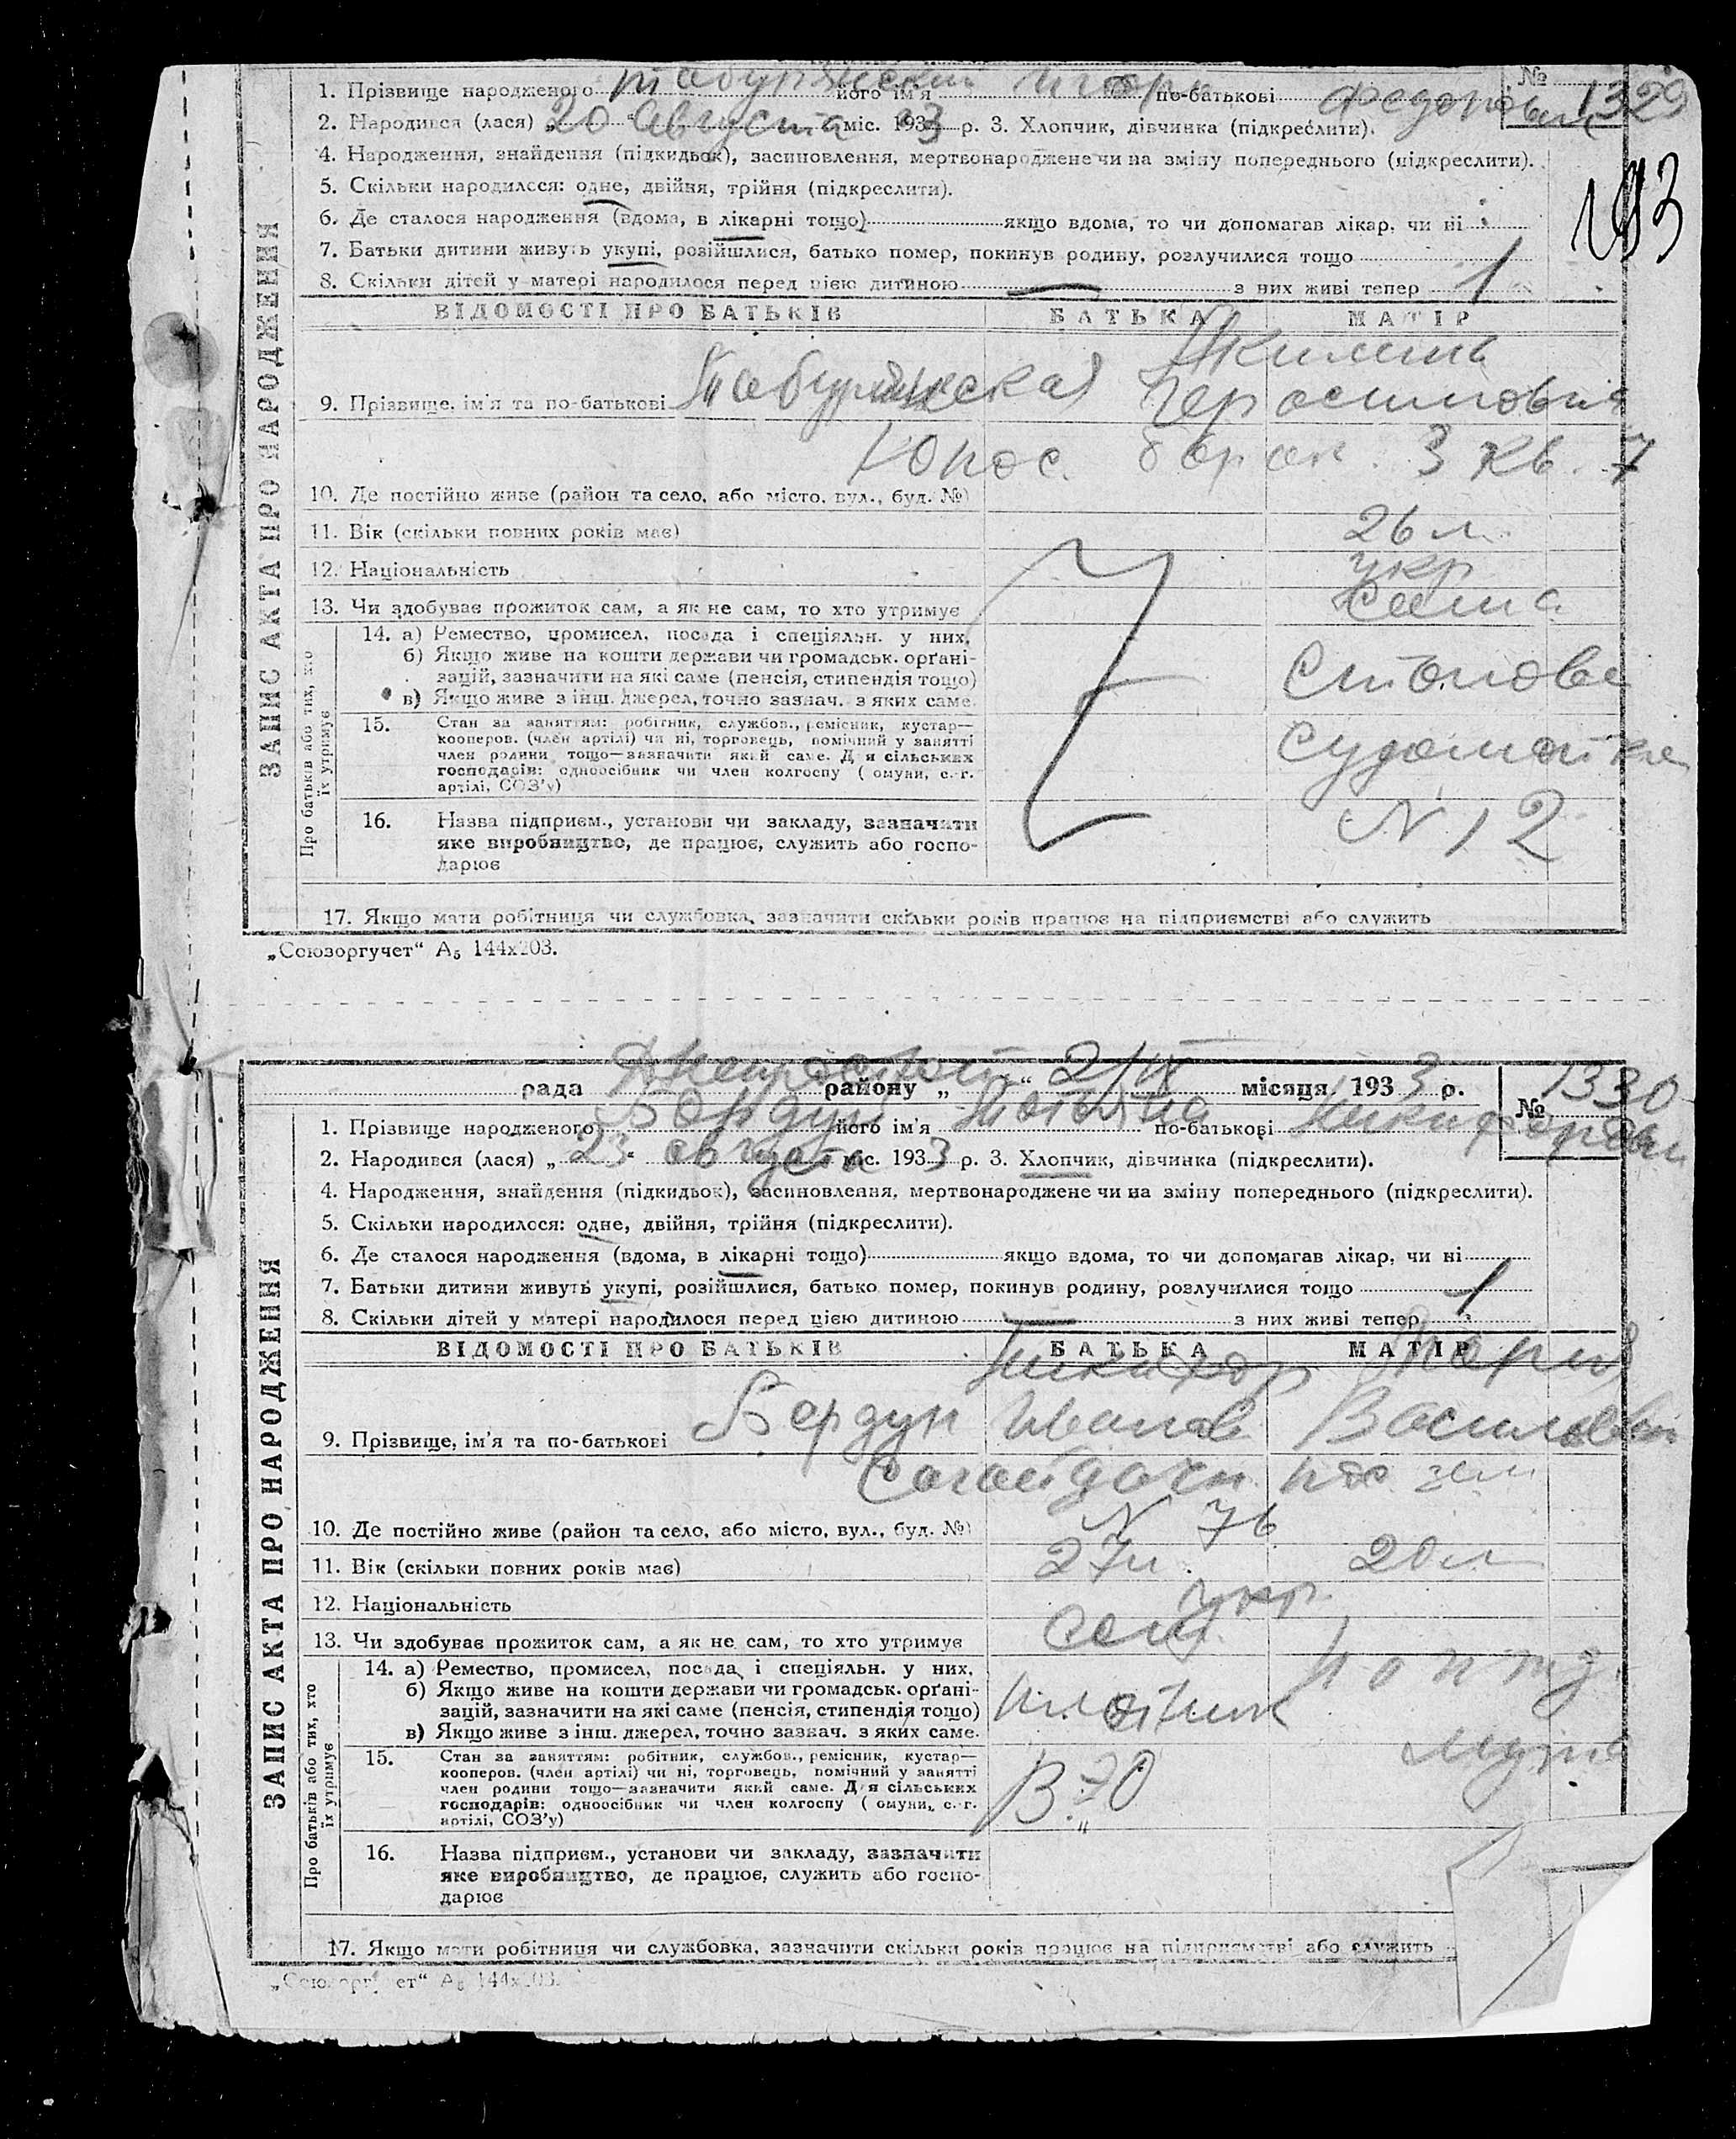 № 1329
1. Прізвище народженого його ім'я по-батькові Федорович
2. Народився (лася) „20“ Августа міс. 1933 р. 3. Хлопчик, дівчинка (підкреслити).
4. Народження, знайдення (підкидьок), засиновлення, мертвонароджене чи на зміну попереднього (підкреслити).
193
5. Скільки народилося: одне, двійня, трійня (підкреслити).
6. Де сталося народження (вдома, в лікарні тощо) якщо вдома, то чи допомагав лікар, чи ні
7. Батьки дитини живуть укупі, розійшлися, батько помер, покинув родину, розлучилися тощо
8. Скільки дітей у матері народилося перед цією дитиною — з них живі тепер 1
ЗАПИС АКТА ПРО НАРОДЖЕННЯ
ВІДОМОСТІ ПРО БАТЬКІВ БАТЬКА МАТІР
9. Прізвище, ім'я та по-батькові
барак. 3 кв. 7
10. Де постійно живе (район та село, або місто, вул., буд. №)
11. Вік (скільки повних років має) 26 л
12. Національність укр
13. Чи здобуває прожиток сам, а як не сам, то хто утримує сама
Про батьків або тих, хто їх утримує
14. а) Ремество, промисел, посада і спеціяльн. у них,
б) Якщо живе на кошти держави чи громадськ. орґані-
зацій, зазначити на які саме (пенсія, стипендія тощо)
в) Якщо живе з інш. джерел, точно зазнач. з яких саме.
Столова
15. Стан за заняттям: робітник, службов., ремісник, кустар—
кооперов. (член артілі) чи ні, торговець, помічний у занятті
член родини тощо—зазначити який саме. Для сільських
господарів: одноосібник чи член колгоспу ( омуни, с.-г.
артілі, СОЗ'у)
судомойка
16. Назва підприєм., установи чи закладу, зазначити
яке виробництво, де працює, служить або госпо-
дарює
N 12
17. Якщо мати робітниця чи службовка, зазначити скільки років працює на підприємстві або служить
„Союзоргучет“ А5 144х203.
рада району „ “ 2/IX місяця 1933 р.
№ 1330
1. Прізвище народженого його ім'я по-батькові
2. Народився (лася) „23“ августа міс. 1933 р. 3. Хлопчик, дівчинка (підкреслити).
4. Народження, знайдення (підкидьок), засиновлення, мертвонароджене чи на зміну попереднього (підкреслити).
5. Скільки народилося: одне, двійня, трійня (підкреслити).
6. Де сталося народження (вдома, в лікарні тощо) якщо вдома, то чи допомагав лікар, чи ні
7. Батьки дитини живуть укупі, розійшлися, батько помер, покинув родину, розлучилися тощо
8. Скільки дітей у матері народилося перед цією дитиною — з них живі тепер 1
ЗАПИС АКТА ПРО НАРОДЖЕННЯ
ВІДОМОСТІ ПРО БАТЬКІВ БАТЬКА МАТІР
Никифор Мария
9. Прізвище, ім'я та по-батькові Иванов
N 76
10. Де постійно живе (район та село, або місто, вул., буд. №)
11. Вік (скільки повних років має) 27л 20л
12. Національність укр.
13. Чи здобуває прожиток сам, а як не сам, то хто утримує сам
Про батьків або тих, хто їх утримує
14. а) Ремество, промисел, посада і спеціяльн. у них,
б) Якщо живе на кошти держави чи громадськ. орґані-
зацій, зазначити на які саме (пенсія, стипендія тощо)
в) Якщо живе з інш. джерел, точно зазнач. з яких саме.
плотник
мужа
15. Стан за заняттям: робітник, службов., ремісник, кустар—
кооперов. (член артілі) чи ні, торговець, помічний у занятті
член родини тощо—зазначити який саме. Для сільських
господарів: одноосібник чи член колгоспу ( омуни, с.-г.
артілі, СОЗ'у)
16. Назва підприєм., установи чи закладу, зазначити
яке виробництво, де працює, служить або госпо-
дарює
17. Якщо мати робітниця чи службовка, зазначити скільки років працює на підприємстві або служить
„Союзоргучет“ А5 144х203.